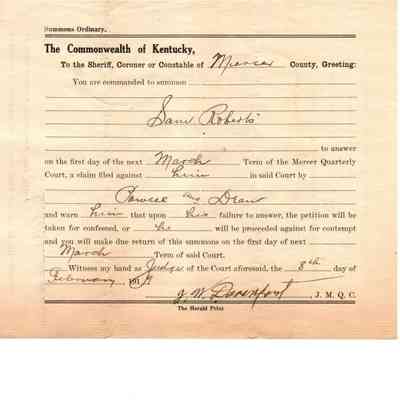 Summons Ordinary.
The Commonwealth of Kentucky,
To the Sheriff, Coroner or Constable of Mercer County, Greeting:
You are commanded to summon
Sam Roberts
to answer
on the first day of the next March Term of the Mercer Quarterly
Court, a claim filed against him in said Court by
and Dean
and warn him that upon his failure to answer, the petition will be
taken for confessed, or he will be proceeded against for contempt
and you will make due return of this summons on the first day of next
March Term of said Court.
Witness my hand as Judge of the Court aforesaid, the 8th day of
February 191
J. W. Davenport, J. M. Q. C.
The Herald Print